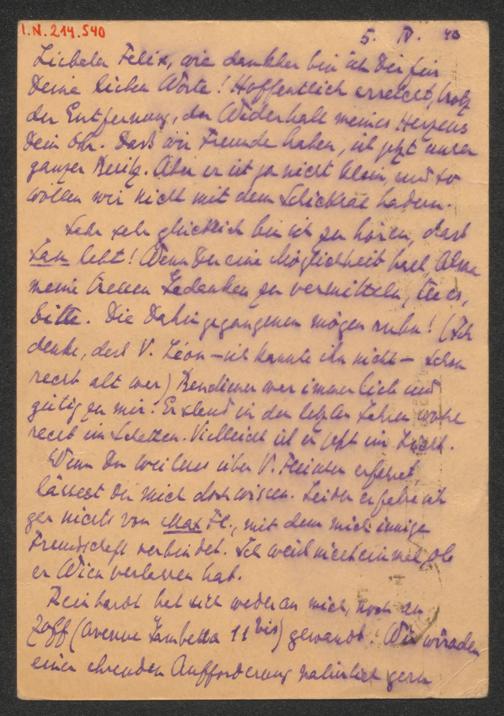 I.N. 214.540
5. IV. 40
Liebster Felix, wie dankbar bin ich Dir für
Deine lieben Worte! Hoffentlich erreicht, trotz
der Entfernung, der Widerhall meines Herzens
Dein Ohr. Dass wir Freunde haben, ist jetzt unser
ganzer Besitz. Aber er ist ja nicht klein und so
wollen wir nicht mit dem Schicksal hadern.
Sehr sehr glücklich bin ich zu hören, dass
lebt! Wenn Du eine Möglichkeit hast,
meine treuen Gedanken zu vermitteln, tu es,
bitte. Die Dahingegangenen mögen ruhn! (Ich
denke, dass V. Léon – ich kannte ihn nicht – schon
recht alt war) war immer lieb und
gütig zu mir. Er stand in den letzten Jahren wohl
recht im Schatten. Vielleicht ist er jetzt im Licht.
Wenn Du weiteres über V. erfährst,
lässest Du mich doch wissen. Leider erfahre ich
gar nichts von Max Fl., mit dem mich innige
Freundschaft verbindet. Ich weiß nicht einmal ob
er Wien verlassen hat.
Reinhardt hat sich weder an mich, noch an
Zoff (Avenue Gambetta 11 bis) gewandt. Wir würden
einer ehrenden Aufforderung natürlich gern